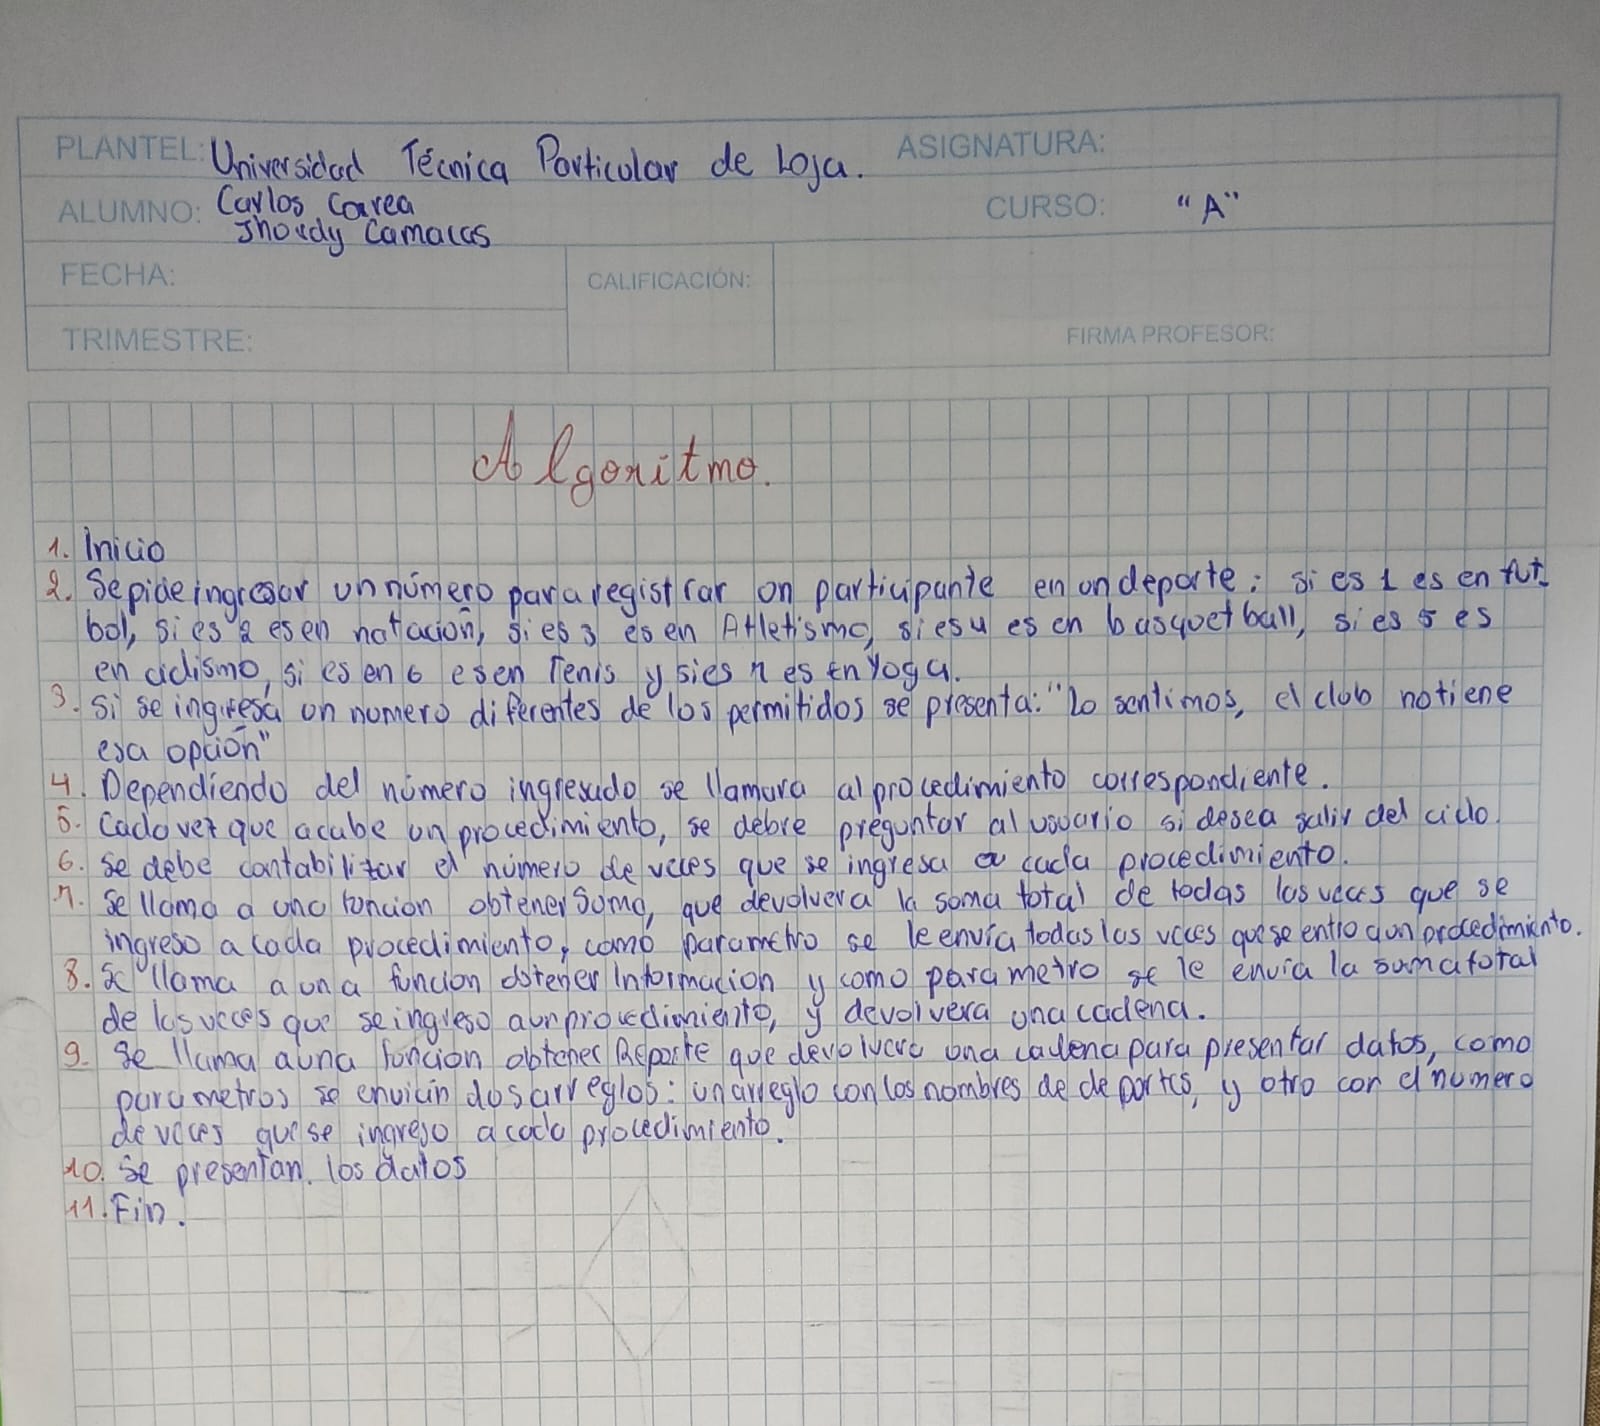 PLANTEL: Universidad Técnica Particular de Loja. ASIGNATURA:
ALUMNO: Carlos Correa CURSO: "A"
Jhordy Camacas
FECHA: CALIFICACIÓN:
TRIMESTRE: FIRMA PROFESOR:
Algoritmo.
1. Inicio
2. Se pide ingresar un número para registrar un participante en un deporte: si es 1 es en fut-
bol, si es 2 es en natación, si es 3 es en Atletismo, si es 4 es en basquetball, si es 5 es
en ciclismo, si es en 6 es en Tenis y si es 7 es en Yoga.
3. Si se ingresa un numero diferentes de los permitidos se presenta: "Lo sentimos, el club no tiene
esa opción"
4. Dependiendo del número ingresado se llamara al procedimiento correspondiente.
5. Cada vez que acabe un procedimiento, se debre preguntar al usuario si desea salir del ciclo.
6. Se debe contabilizar el número de veces que se ingresa a cada procedimiento.
7. Se llama a una funcion obtenerSuma, que devolvera la suma total de todas las veces que se
ingreso a cada procedimiento, como parametro se le envía todas las veces que se entro a un procedimiento.
8. Se llama a una funcion obtener Informacion y como parametro se le envía la suma total
de las veces que se ingreso a un procedimiento, y devolvera una cadena.
9. Se llama a una funcion obtener Reporte que devolvera una cadena para presentar datos, como
parametros se envian dos arreglos: un arreglo con los nombres de deportes, y otro con el numero
de veces que se ingreso a cada procedimiento.
10. Se presentan. los datos
11. Fin.